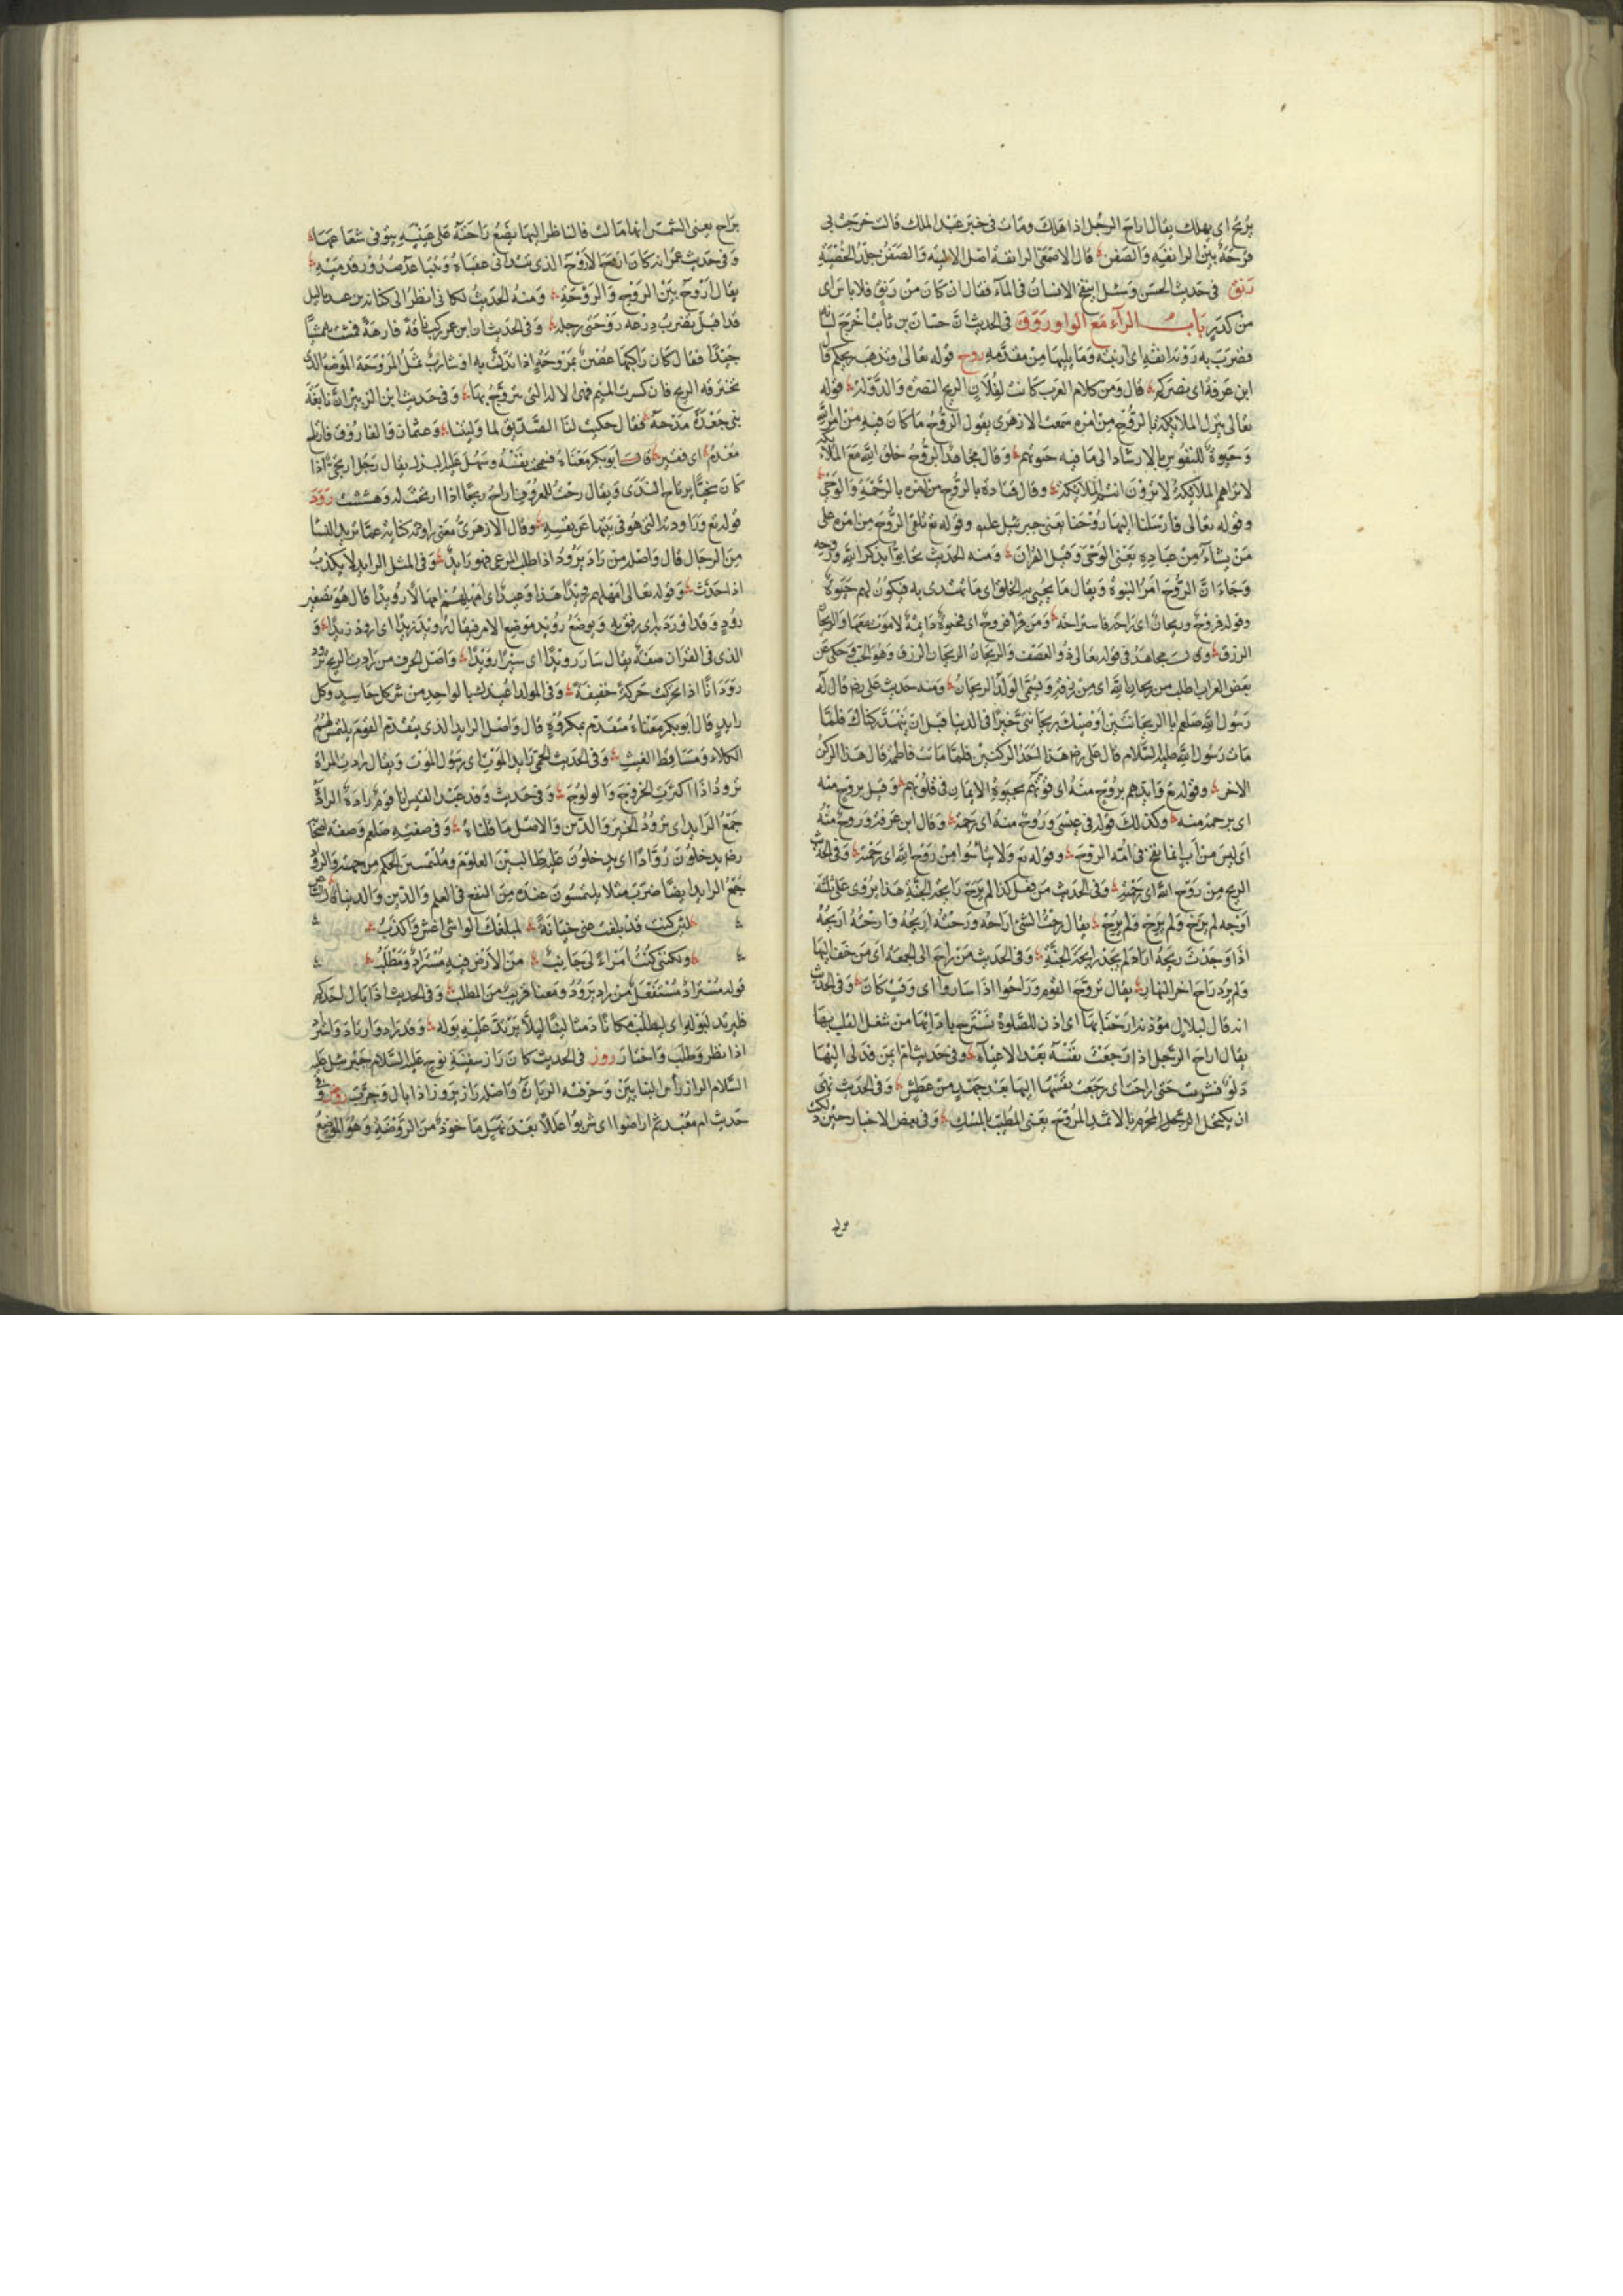 يريح اى يهلك يقال اراح الرجل اذا هلك ومات فى خبر عبد الملك قالت خرجت بى
قرحة بين الرانفة والصفن قال الاصمعى الرانفة اصل الالية والصفن جلد الخصية
رنق فى حديث الحسن وسئل اينفخ الانسان فى الماء فقال ان كان من رنق فلا باس اى
من كدر باب الراء مع الواو روق فى الحديث ان حسان بن ثابت اخرج لسانه
فضرب به روثة انفه اى ارنبته وما يليها من مقدمه روح قوله تعالى وتذهب ريحكم قال
ابن عرفة اى نصركم قال ومن كلام العرب كانت لفلان الريح النصرة والدولة قوله
تعالى ينزل الملائكة بالروح من امره سمعت الازهرى يقول الروح ما كان فيه من امر الله
وحيوة للنفوس بالارشاد الى ما فيه حيوتهم وقال مجاهد الروح خلق الله مع الملائكة
لا تراهم الملائكة كما لا ترون انتم الملائكة وقال قتادة بالروح من امره بالرحمة والوحى
وقوله تعالى فارسلنا اليها روحنا يعنى جبرئيل عليه وقوله تع يلقى الروح من امره على
من يشاء من عباده يعنى الوحى وقيل القران ومنه الحديث تحابوا بذكر الله وروحه
وجاء ان الروح امر النبوة ويقال ما يحيى به الخلق اى ما يهتدى به فيكون لهم حيوة
وقوله فروح وريحان اى راحة فاستراحة ومن قرا فروح اى فحيوة دايمة لا موت معها والريحان
الرزق وقال مجاهد فى قوله تعالى ذو العصف والريحان الريحان الرزق وهو الحب وحكى عن
بعض العرب اطلب من ريحان الله اى من رزقه ويسمى الولد الريحان ومنه حديث على رض قال له
رسول الله صلعم ابا الريحانتين اوصيك بريحانتى خيرا فى الدنيا قبل ان ينهد ركناك فلما
مات رسول الله عليه السلام قال على رض هذا احد الركنين فلما ماتت فاطمة قال هذا الركن
الاخر وقوله تع وايدهم بروح منه اى قوتهم بحيوة الايمان فى قلوبهم وقيل بروح منه
اى برحمة منه وكذلك قوله فى عيسى وروح منه اى رحمة وقال ابن عرفة وروح منه
اى ليس من اب انما نفخ فى امه الروح وقوله تع ولا تيأسوا من روح الله اى رحمته وفى الحديث
الريح من روح الله اى رحمته وفى الحديث من فعل كذا لم يرح رايحة الجنة هذا يروى على ثلثة
اوجه لم يرح ولم يرح ولم يرح يقال رحت الشئ اراحه ورحته اريحه وارحته اريحه
اذا وجدت ريحه اراد لم يجد رايحة الجنة وفى الحديث من راح الى الجمعة اى من خف اليها
ولم يرد راح اخر النهار يقال تروح القوم وراحوا اذا ساروا اى وقت كان وفى الحديث
انه قال لبلال مؤذنه ارحنا بها اى اذن للصلوة نسترح بادائها من شغل القلب بها
يقال اراح الرجل اذا رجعت نفسه بعد الاعياء وفى حديث ام ايمن قد دلى اليها
دلو فشربت حتى اراحت اى رجعت نفسها اليها بعد جهد من عطش وفى الحديث نهى
ان يكتحل الرجل المحرم بالاثمد المروح يعنى المطيب بالمسك وفى بعض الاخبار حين دلكت
براح يعنى الشمس انها مالت فالناظر اليها يضع راحته على عينيه يتوقى شعاعها
وفى حديث عمر انه كان اروح الاروح الذى تتدانى عقباه ويتباعد صدور قدميه
يقال اروح بين الروح والروحة ومنه الحديث لكانى انظر الى كنانة بن عبد ياليل
قد اقبل يضرب درعه روحتى رجليه وفى الحديث ان ابن عمر ركب ناقة فارهة فمشت به مشيا
جيدا فقال كان راكبها غصن بمروحة اذا تدلت به او شارب ثمل المروحة الموضع الذى
تخترقه الريح فان كسرت الميم فهى الالة التى يتروح بها وفى حديث ابن الزبير ان نابغة
بنى جعدة مدحه فقال حكيت لنا الصديق لما وليتنا وعثمان والفاروق فارتاح
معدم اى فقير قال ابو بكر معناه فسمحت نفسه وسهل عليه البذل يقال رجل اريحى اذا
كان سخيا يرتاح للندى ويقال رحت للمعروف اراح ريحا اذا ارتحت له وهششت رود
قوله تع وراودته التى هو فى بيتها عن نفسه وقال الازهرى معنى راودته كناية عما تريد النسا
من الرجال قال واصله من راد يرود اذا طلب المرعى فهو رايد وفى المثل الرايد لا يكذب
اذا حدث وقوله تعالى امهلهم رويدا هذا وعيد اى امهلهم امهالا رويدا قال هو تصغير
رود وقد اورد به اى رفق به ويوضع رويد موضع الامر فيقال رويد زيدا اى ارود زيدا و
الذى فى القران صفة يقال سار رويدا اى سيرا رويدا واصل الحرف من رادت الريح ترود
رودانا اذا تحركت حركة خفيفة وفى المولد اعيذك بالواحد من شر كل حاسد وكل
رايد قال ابو بكر معناه متقدم بمكروه قال واصل الرايد الذى يتقدم القوم يلتمس لهم
الكلاء ومساقط الغيث وفى الحديث الحمى رايد الموت اى رسول الموت ويقال رادت المراة
ترود اذا اكثرت الخروج والولوج وفى حديث وفد عبد القيس انا قوم رادة الرادة
جمع الرايد اى نرود الخير والدين والاصل ما قلناه وفى صفته صلعم وصفة اصحابه
رض يدخلون روادا اى يدخلون عليه طالبين العلوم وملتمسين الحكم من جهته والرواد
جمع الرايد ايضا ضرب مثلا يلتمسون عنده من النفع فى العلم والدين والدنيا
لئن كنت قد بلغت عنى خيانة لمبلغك الواشى اغش واكذب
ولكننى كنت امراء لى جانب من الارض فيه مستراد ومطلب
قوله مستراد مستفعل من راد يرود ومعناه قريب من المطلب وفى الحديث اذا بال احدكم
فليرتد لبوله اى ليطلب مكانا دمثا لينا ليلا يرتد عليه بوله وقد راد وارتاد واستراد
اذا نظر وطلب واختار روز فى الحديث كان راز سفينة نوح عليه السلام جبرئيل عليه
السلام الراز رأس البنايين وحرفته الريازة واصله راز يروز اذا بالى وجرب روض فى
حديث ام معبد ثم اراضوا اى شربوا عللا بعد نهل ماخوذ من الروضة وهو الموضع